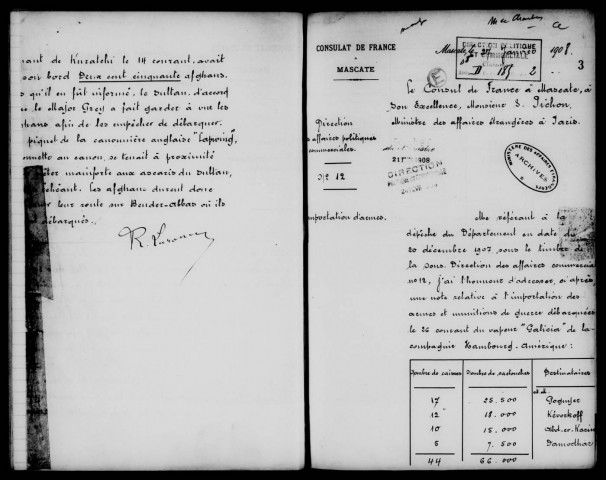 ant de Kuratchi le 14 courant, avait
son bord Deux cent cinquante afghans.
s qu'il en fut informé, le Sultan, d'accord
le Major Grey a fait garder à vue les
ghans afin de les empêcher de débarquer.
piquet de la canonnière anglaise "Lapwing",
onnette au canon, se tenait à proximité
prêter mainforte aux ascaris du Sultan,
échéant. Les afghans durent donc
leur route sur Bender-Abbas où ils
débarqués.
CONSULAT DE FRANCE
À
MASCATE
Mascate, le 27 janvier 1908.
DIRECTION POLITIQUE
3
Direction
s affaires politiques
commerciales.
N° 12
importation d'armes.
Le Consul de France à Mascate, à
Son Excellence, Monsieur S. Pichon,
Ministre des affaires étrangères à Paris.
21 1908
DIRECTION
MINISTÈRE DES AFFAIRES ÉTRANGÈRES
ARCHIVES
Me référant à la
dépêche du Département en date du
20 décembre 1907, sous le timbre de
la Sous. Direction des affaires commerciales
n° 12, j'ai l'honneur d'adresser, ci après,
une note relative à l'importation des
armes et munitions de guerre débarquées
le 26 courant du vapeur "Galicia" de la
compagnie Hambourg-Amérique :
Nombre de caisses Nombre de cartouches Destinataires
17 25.500 Goguyer
12 18.000 Kévorkoff
10 15.000 Abd-er-Karim
5 7.500 Damodhar
44 66.000